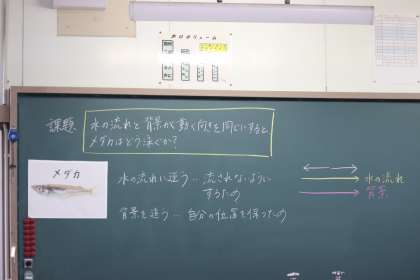 課題
水の流れと背景が動く向きを同じにすると
メダカはどう泳ぐか?
メダカ
水の流れに逆う…流されないように
するため
背景を追う…自分の位置を保つため
水の流れ
背景